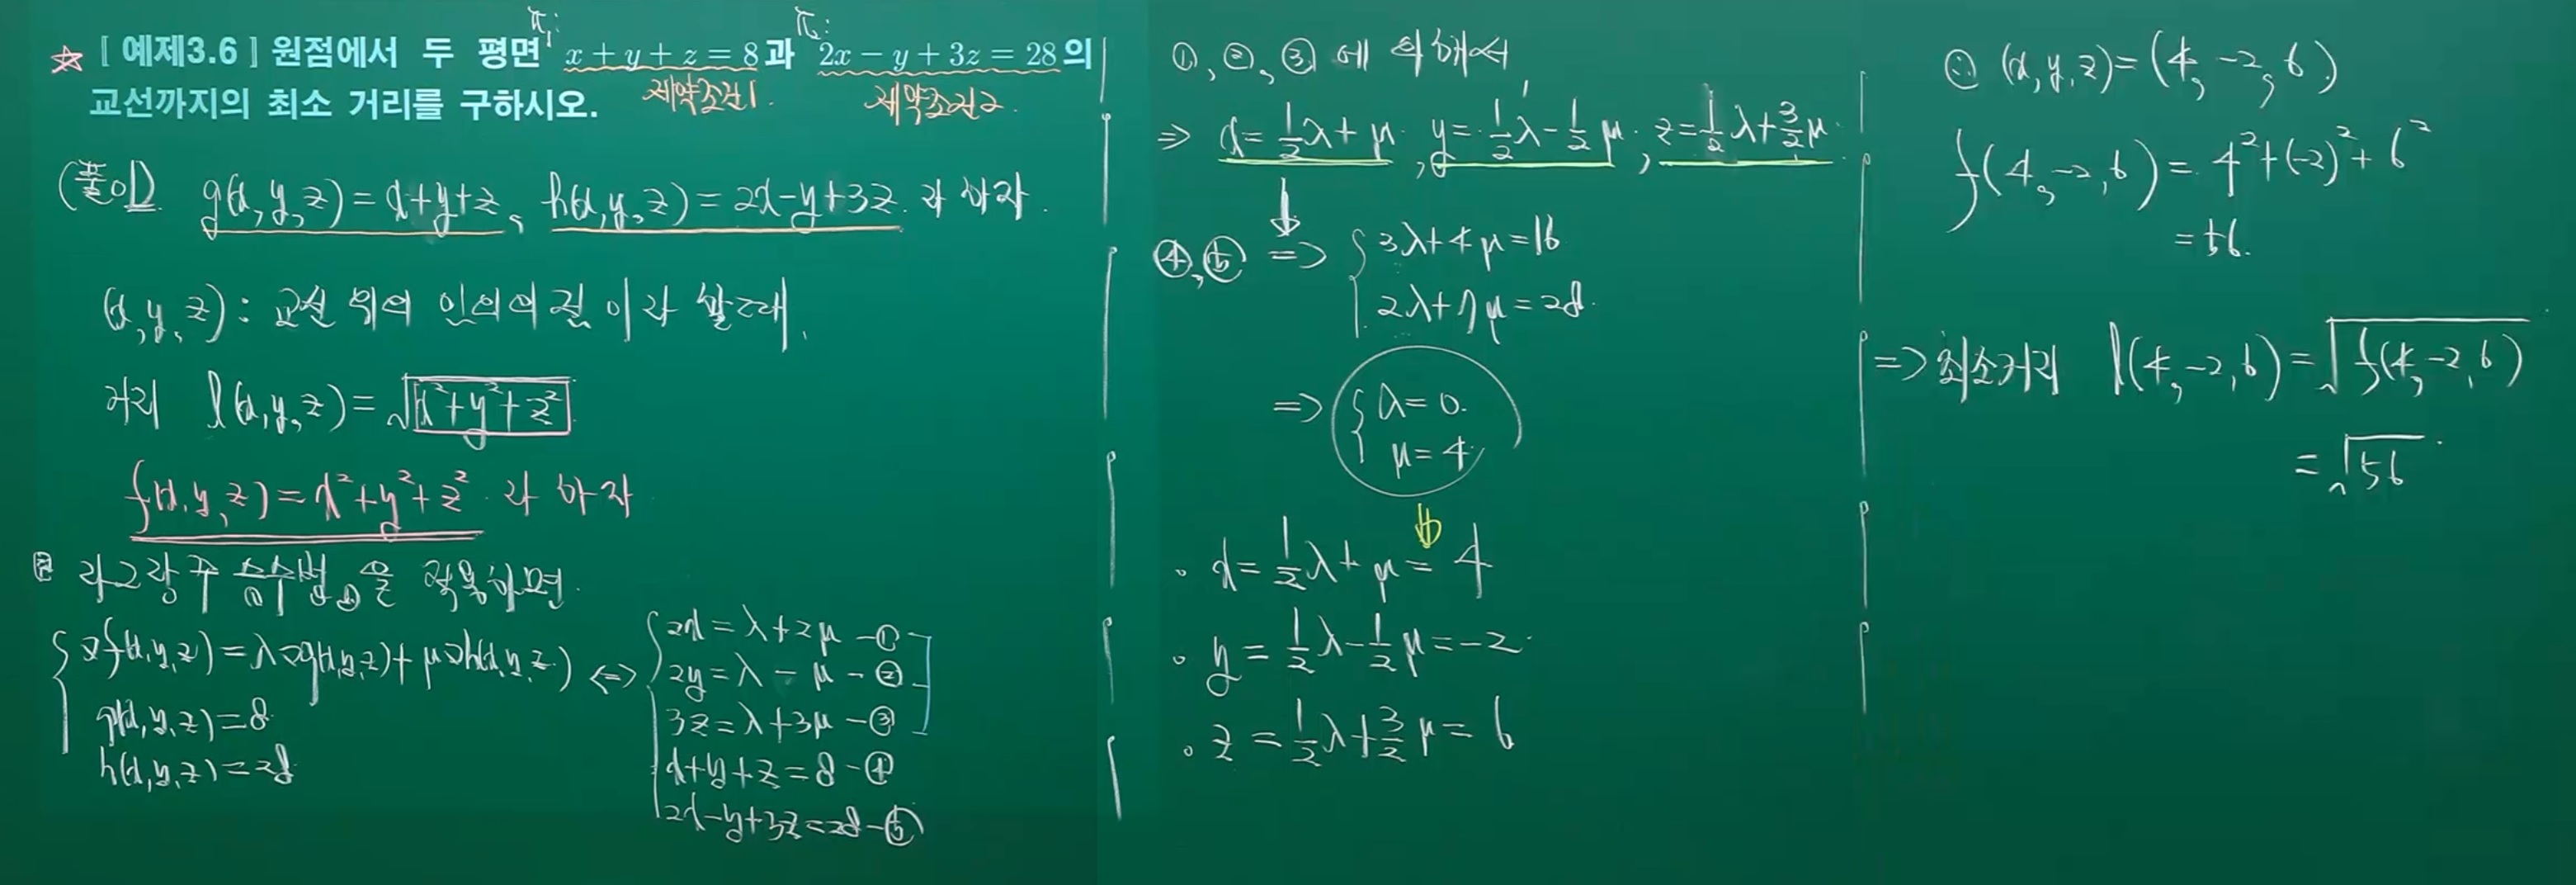 π₁: π₂:
☆ [ 예제3.6 ] 원점에서 두 평면 x + y + z = 8과 2x − y + 3z = 28의
교선까지의 최소 거리를 구하시오.
제약조건1. 제약조건2.
(풀이) g(x,y,z)=x+y+z, h(x,y,z)=2x-y+3z 라 하자.
(x,y,z): 교선 위의 임의의 점이라 할 때,
거리 l(x,y,z)=√(x²+y²+z²)
f(x,y,z)=x²+y²+z² 라 하자
라그랑주 승수법을 적용하면.
{ ∇f(x,y,z)=λ∇g(x,y,z)+μ∇h(x,y,z)
g(x,y,z)=8
h(x,y,z)=28
⇔ { 2x=λ+2μ -①
2y=λ-μ -②
3z=λ+3μ -③
x+y+z=8 -④
2x-y+3z=28 -⑤
①,②,③에 의해서,
⇒ x=½λ+μ, y=½λ-½μ, z=½λ+3/2μ.
↓
④,⑤ ⇒ { 3λ+4μ=16
2λ+7μ=28.
⇒ { λ=0.
μ=4
↓
• x=½λ+μ=4
• y=½λ-½μ=-2
• z=½λ+3/2μ=6
∴ (x,y,z)=(4,-2,6)
f(4,-2,6)=4²+(-2)²+6²
=56.
⇒ 최소거리 l(4,-2,6)=√f(4,-2,6)
=√56